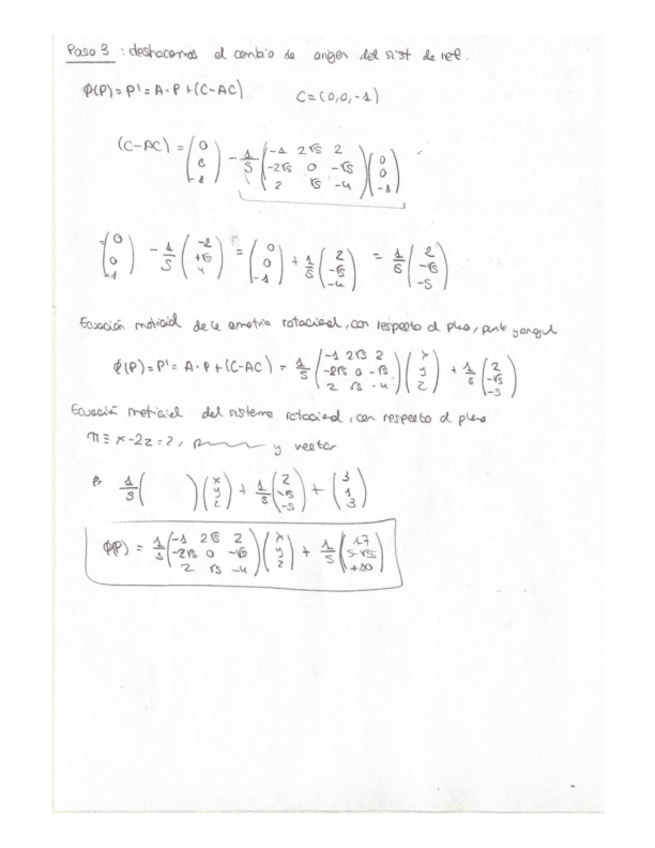 Paso 3 : deshacemos el cambio de origen del sist de ref.
φ(P) = P' = A·P + (C-AC)   C = (0,0,-1)
(C-AC) = (0 0 -1) - 1/5 (-1 2√5 2 / -2√5 0 -√5 / 2 √5 -4) (0 0 -1)
= (0 0 -1) - 1/5 (-2 +√5 4) = (0 0 -1) + 1/5 (2 -√5 -4) = 1/5 (2 -√5 -5)
Ecuación matricial de la simetría rotacional, con respecto al plano, punto y angul
φ(P) = P' = A·P + (C-AC) = 1/5 (-1 2√5 2 / -2√5 0 -√5 / 2 √5 -4) (x y z) + 1/5 (2 -√5 -5)
Ecuación matricial del sistema rotacional, con respecto al plano
π ≡ x-2z=2, y vector
1/5 ( ) (x y z) + 1/5 (2 -√5 -5) + (3 1 3)
φ(P) = 1/5 (-1 2√5 2 / -2√5 0 -√5 / 2 √5 -4) (x y z) + 1/5 (17 5-√5 +10)